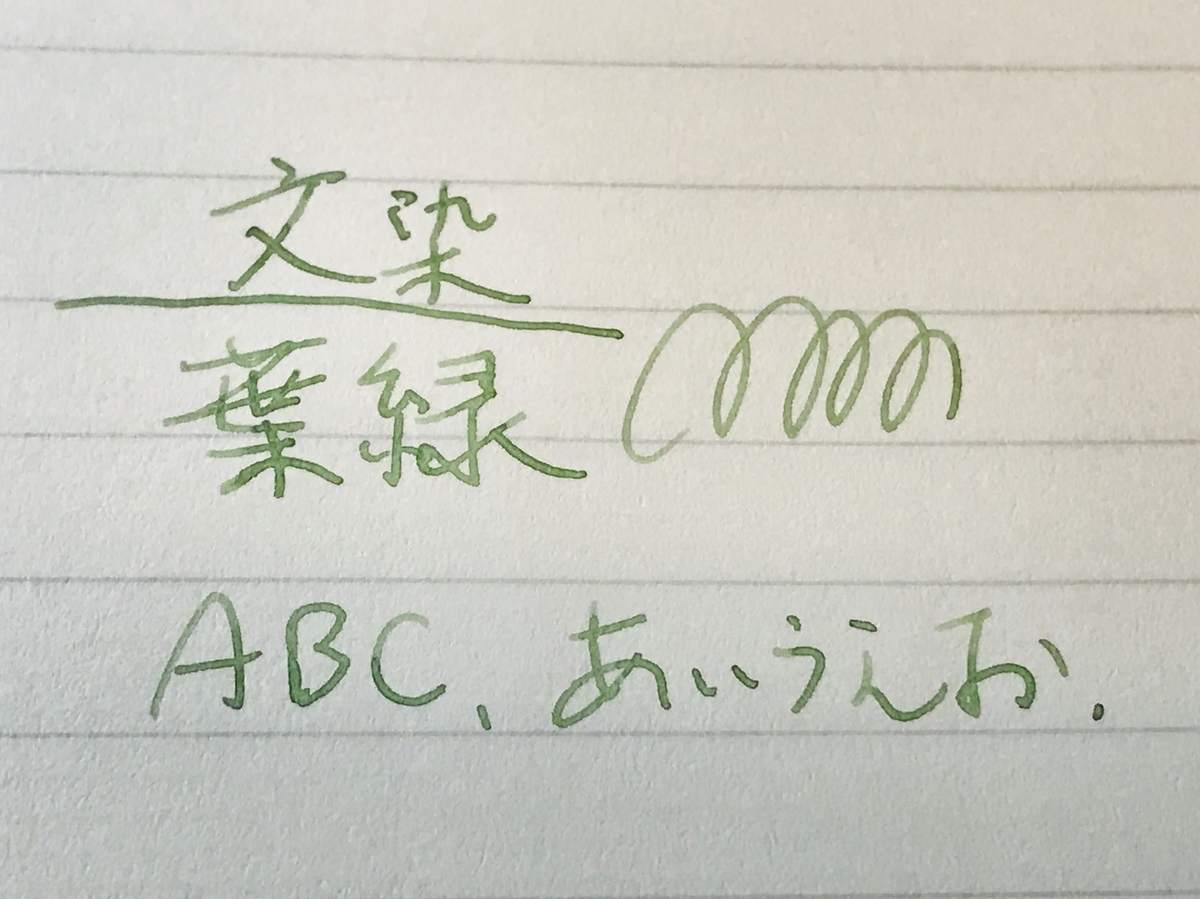 文染
葉緑
ABC、あいうえお.